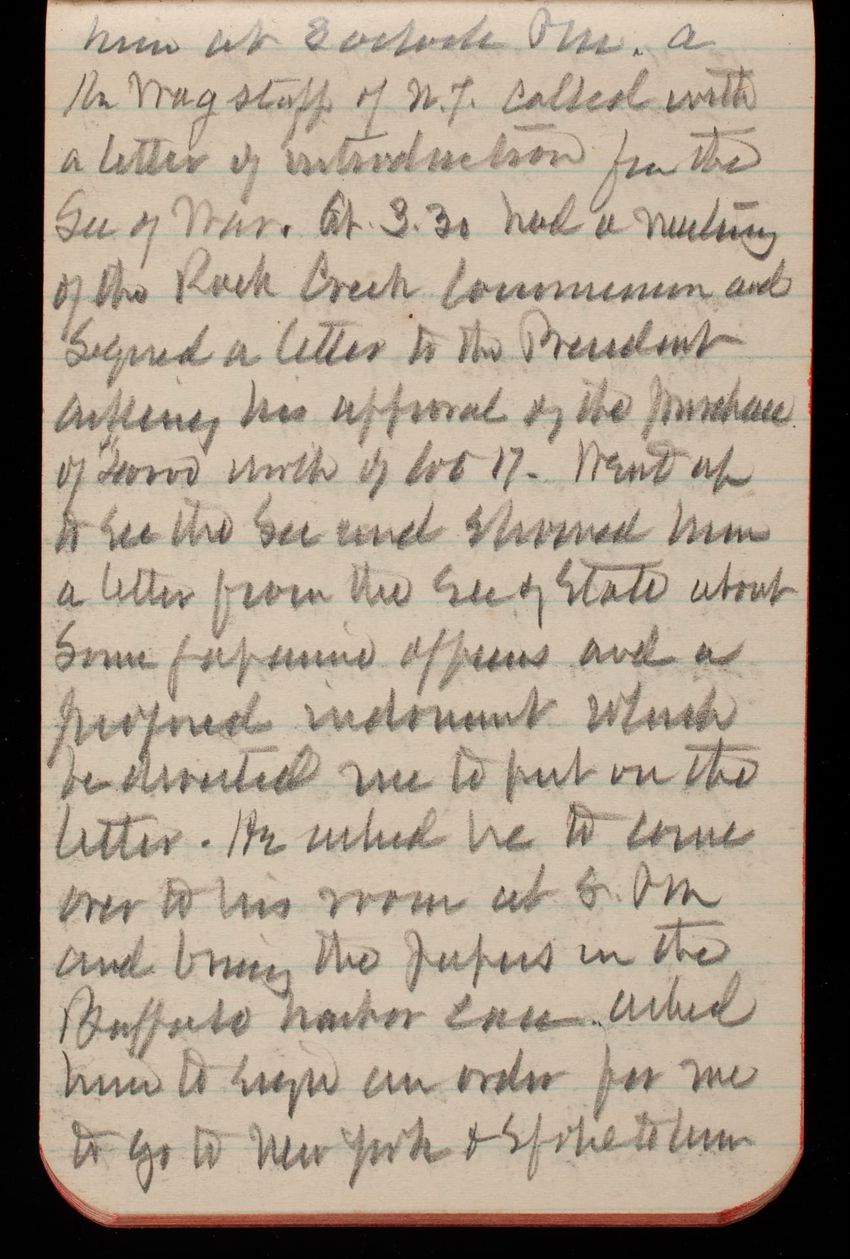 him at 8 oclock PM. a
Mr Wagstaff of N.J. called with
a letter of introduction from the
Sec of War. At 3.30 had a meeting
of the Rock Creek Commission and
Signed a letter to the President
asking his approval of the purchase
of worth of lot 17. Went up
to see the Sec and showed him
a letter from the Sec of State about
Some Japanese officers and a
proposed indorsement which
he directed me to put on the
letter. He asked me to come
over to his room at 8. PM
and bring the papers in the
Buffalo harbor case. asked
him to sign an order for me
to go to New York & Spoke to him